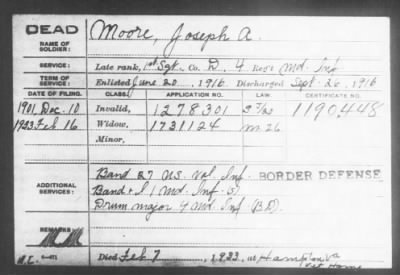 DEAD
NAME OF SOLDIER: Moore, Joseph A.
SERVICE: Late rank, 1st Sgt, Co. D, 4 Reg't Md. Inf
TERM OF SERVICE: Enlisted June 20, 1916. Discharged Sept. 26, 1916
DATE OF FILING. CLASS. APPLICATION NO. LAW. CERTIFICATE NO.
1901 Dec. 10 Invalid, 1278301 1190448
1933 Feb 16 Widow, 1731124
Minor,
ADDITIONAL SERVICES: Band 27 US. Vol. Inf. BORDER DEFENSE
Band & I 1 Md. Inf.
Drum major 4 Md Inf (B.D.)
REMARKS
Died Feb 7, 1933, at Hampton Va